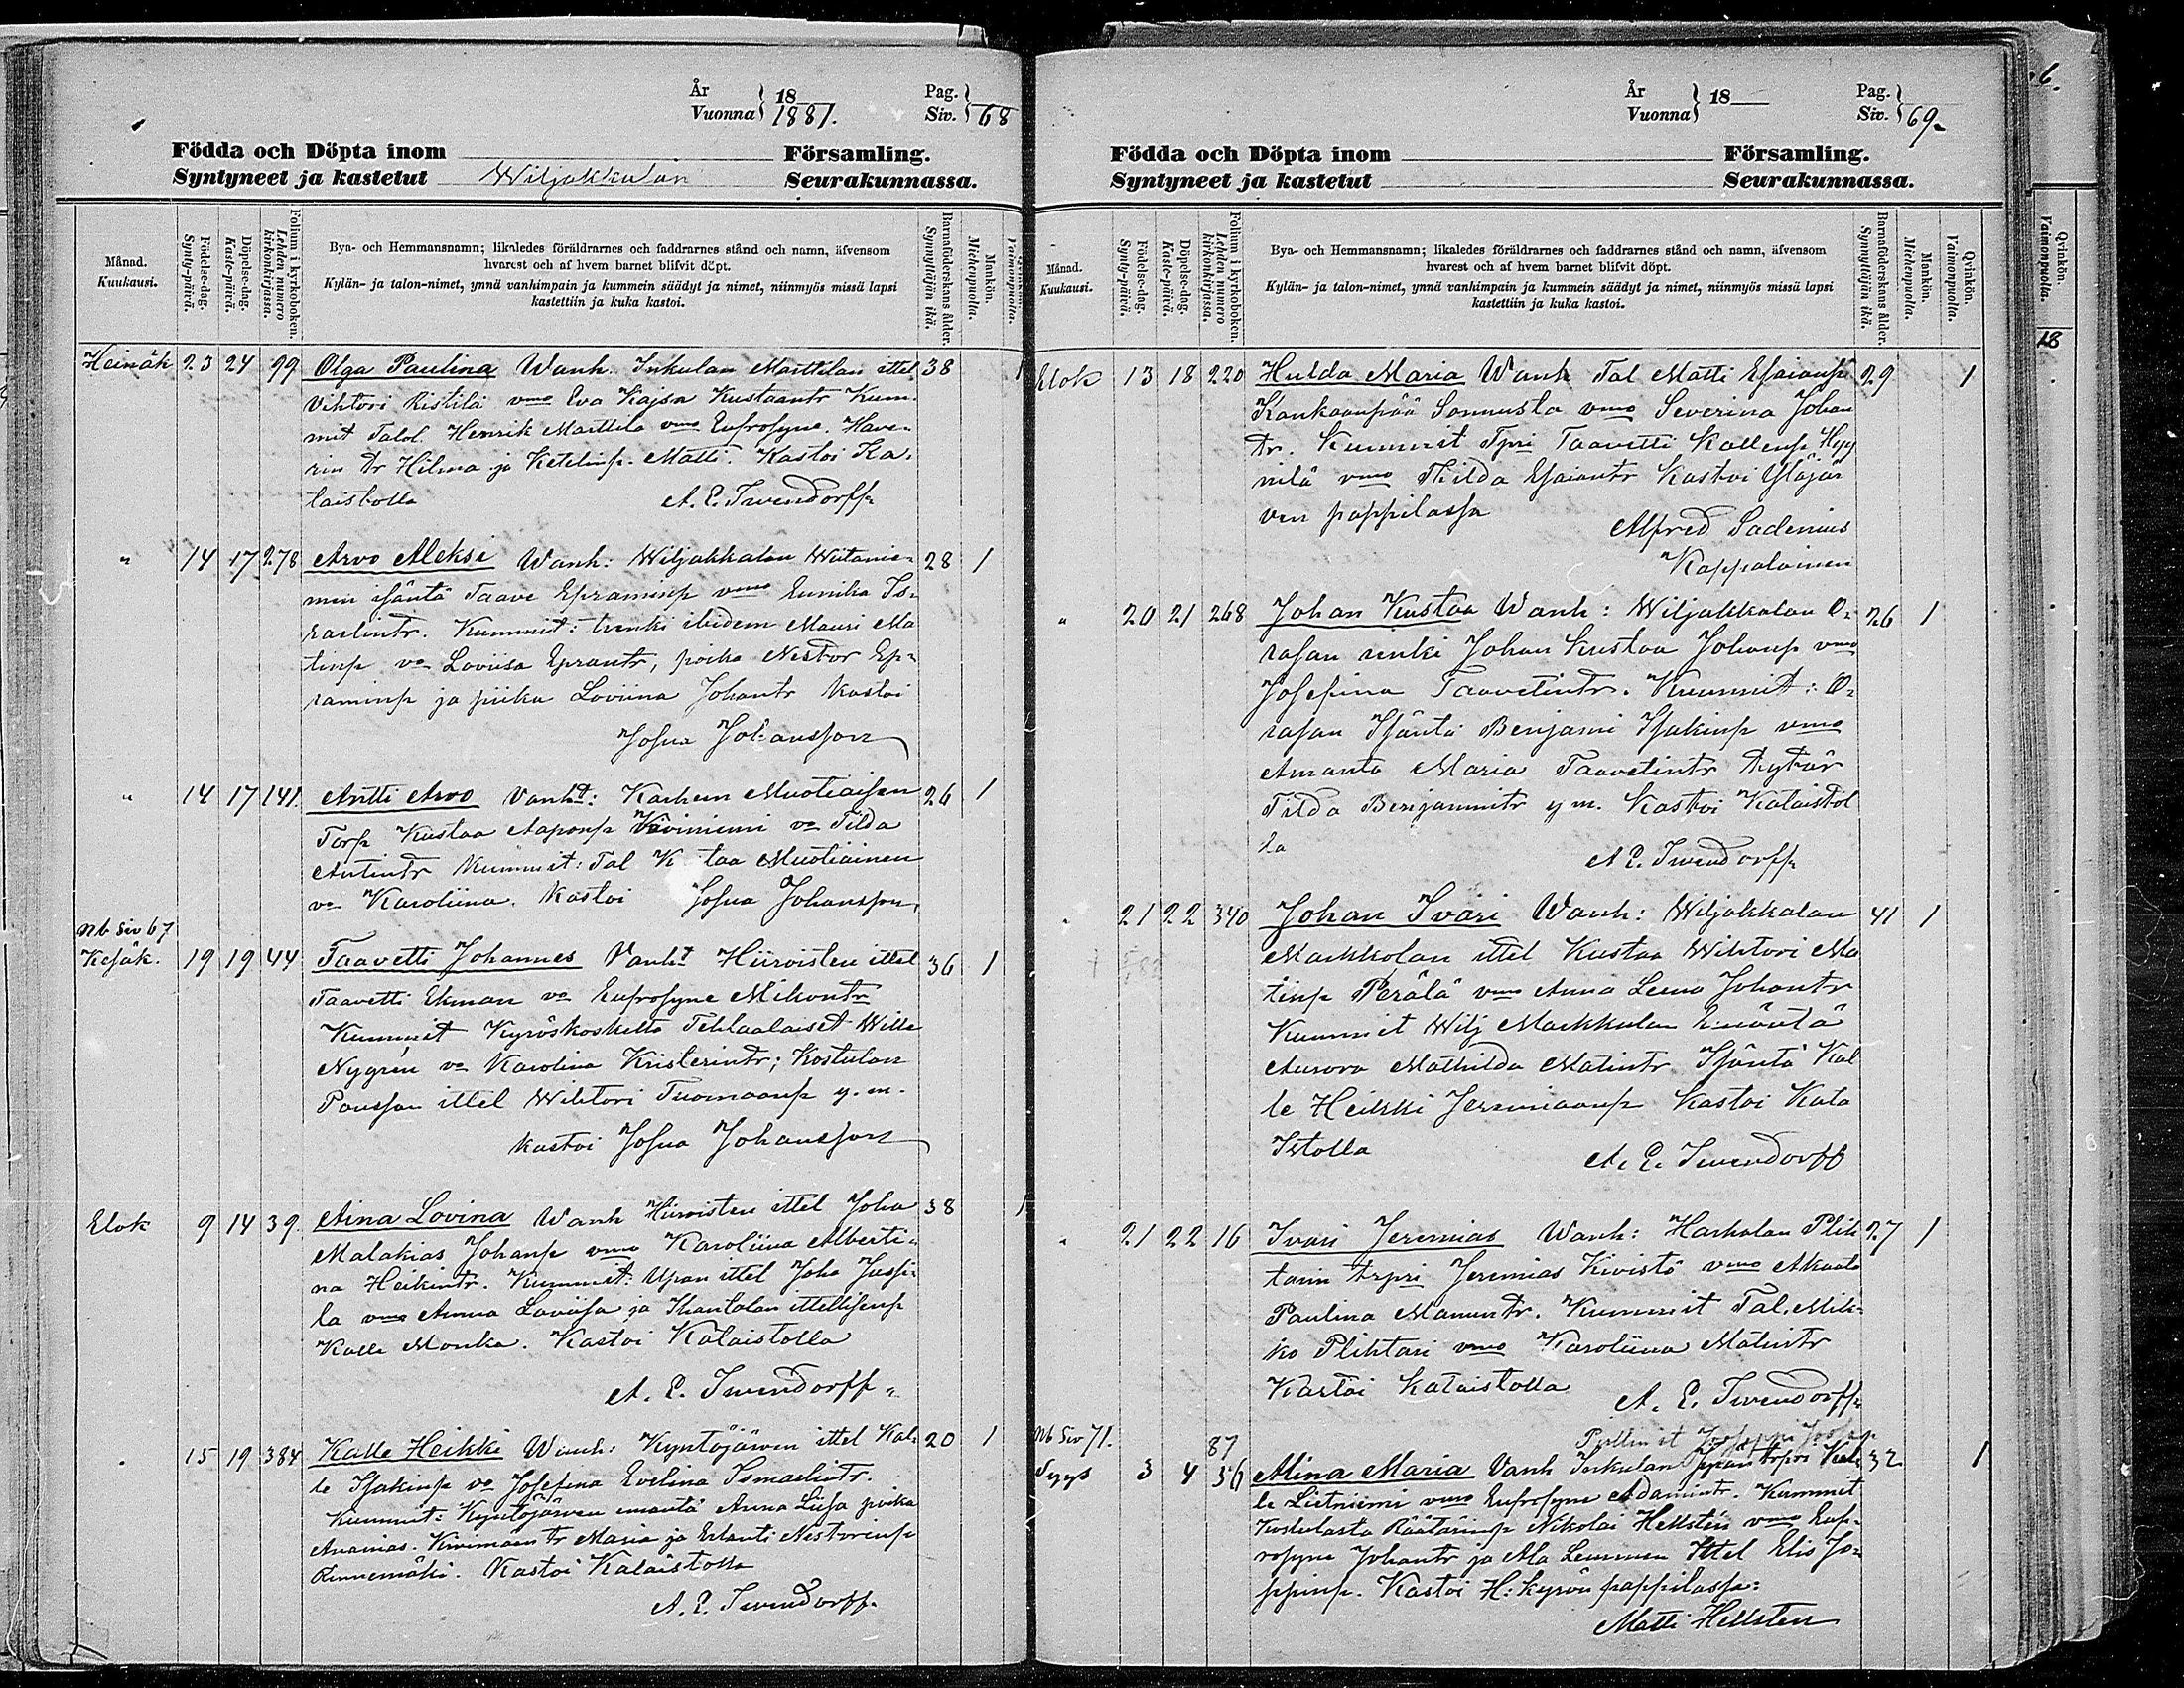 År Vuonna } 18 1881. Pag. Siv. } 68
Födda och Döpta inom Församling.
Syntyneet ja kastetut Wiljakkalan Seurakunnassa.
Månad. Kuukausi.
Födelse-dag. Synty-päivä.
Döpelse-dag. Kaste-päivä.
Folium i kyrkoboken. Lehden numero kirkonkirjassa.
Bya- och Hemmansnamn; likaledes föräldrarnes och faddrarnes stånd och namn, äfvensom
hvarest och af hvem barnet blifvit döpt.
Kylän- ja talon-nimet, ynnä vanhimpain ja kummein säädyt ja nimet, niinmyös missä lapsi
kastettiin ja kuka kastoi.
Barnaföderskans ålder. Synnyttäjän ikä.
Mankön. Miehenpuolta.
Qvinkön. Vaimonpuolta.
Heinäk 23 24 99 Olga Paulina Wanh. Inkulan Marttilan ittel 38 1
Vihtori Ristilä vmo Eva Kajsa Kustaantr Kum-
mit Talol. Henrik Marttila vmo Eufrosyne. Have-
rin tr Hilma ja Ketelinp. Matti. Kastoi Ka-
laistolla A. E. Twendorff
" 14 17 278 Arvo Aleksi Wanh: Wiljakkalan Wiitanie- 28 1
men isäntä Taave Epraminp vmo Eunika Is-
raelintr. Kummit: trenki ibidem Mauri Ma
tinp va Loviisa Eprantr, poika Nestor Ep-
raminp ja piika Loviina Johantr kastoi
Josua Johansson
" 14 17 141. Antti Arvo Vanht: Karhen Muotiaisen 26 1
Torp Kustaa Aaponp Viviniemi va Tilda
Antintr Kummit: Tal K taa Muotiainen
va Karoliina. Kastoi Josua Johansson,
Nb Siv 67
Kesäk. 19 19 44 Taavetti Johannes Vanht Hiiroisten ittel 36 1
Taavetti Ekman va Eufrosyne Mikontr
Kummit Kyröskoskelta Tehtaalaiset Wille
Nygrén va Karolina Kristerintr; Kostulan
Paussan ittel Wihtori Tuomaanp y. m.
kastoi Josua Johansson
Elok 9 14 39. Aina Lovina Wanh Hiiroisten ittel Joha 38 1
Malakias Johanp vmo Karoliina Alberti-
na Heikintr. Kummit: Upan ittel Joha Jussi-
la vmo Anna Loviisa ja Ihantolan ittellisenp
Kalle Monka. Kastoi Kalaistolla
A. E. Twendorff
" 15 19 384 Kalle Heikki Wanh: Kyntöjärven ittel Kal- 20 1
le Isakinp va Josefina Evelina Ismaelintr.
Kummit: Kyntöjärven emäntä Anna Liisa poika
Ananias. Kivimäen tr Maria ja Erlanti Nestorinp
Rinnemäki. Kastoi Kalaistolla
A. E. Twendorff
År Vuonna } 18 Pag. Siv. } 69.
Födda och Döpta inom Församling.
Syntyneet ja kastetut Seurakunnassa.
Månad. Kuukausi.
Födelse-dag. Synty-päivä.
Döpelse-dag. Kaste-päivä.
Folium i kyrkoboken. Lehden numero kirkonkirjassa.
Bya- och Hemmansnamn; likaledes föräldrarnes och faddrarnes stånd och namn, äfvensom
hvarest och af hvem barnet blifvit döpt.
Kylän- ja talon-nimet, ynnä vanhimpain ja kummein säädyt ja nimet, niinmyös missä lapsi
kastettiin ja kuka kastoi.
Barnaföderskans ålder. Synnyttäjän ikä.
Mankön. Miehenpuolta.
Qvinkön. Vaimonpuolta.
Elok 13 18 220 Hulda Maria Wanh Tal Matti Esaianp 29 1
Kankaanpää Sonnusta vmo Severina Johan
tr. Kummit Tpri Taavetti Kallenp Hyy
nilä vmo Thilda Esaiantr Kastoi Yläjär
ven pappilassa
Alfred Sadenius
Kappalainen
" 20 21 268 Johan Kustaa Wanh: Wiljakkalan O- 26 1
rasan renki Johan Kustaa Johanp vmo
Josefina Taavetintr. Kummit: O-
rasan Isäntä Benjami Isakinp vmo
Amanta Maria Taavetintr tytär
Tilda Benjamintr y m. Kastoi Kalaistol
la A E. Twendorff
" 21 22 340 Johan Iväri Wanh: Wiljakkalan 41 1
Markkolan ittel Kustaa Wihtori Ma
tinp Perälä vmo Anna Leena Johantr
Kummit Wilj Markkulan Emäntä
Aurora Mathilda Matintr Isäntä Kal
le Heikki Jeremiaanp Kastoi Kala
Istolla A. E. Twendorff
" 21 22 16 Ivari Jeremias Wanh: Harhalan Plih 27 1
tarin trpri Jeremias Kivistö vmo Akaata
Paulina Manuntr. Kummit Tal. Mik-
ko Plihtari vmo Karoliina Matintr
Kastoi Kalaistolla A. E. Twendorff
Nb Siv 71. 87
Syys 3 4 56 Alina Maria Vanh Inkulan trpri Kal- 32 1
le Lietniemi vmo Eufrosyne Adamintr. Kummit
Inkulasta Räätälinp Nikolai Hellstén vmo Euf-
rosyne Johantr ja Ala Lemmen Ittel Elis Jo-
ppinp. Kastoi H: kyrön pappilassa:
Matti Hellsten
6.
Qvinkön.
Vaimonpuolta.
18